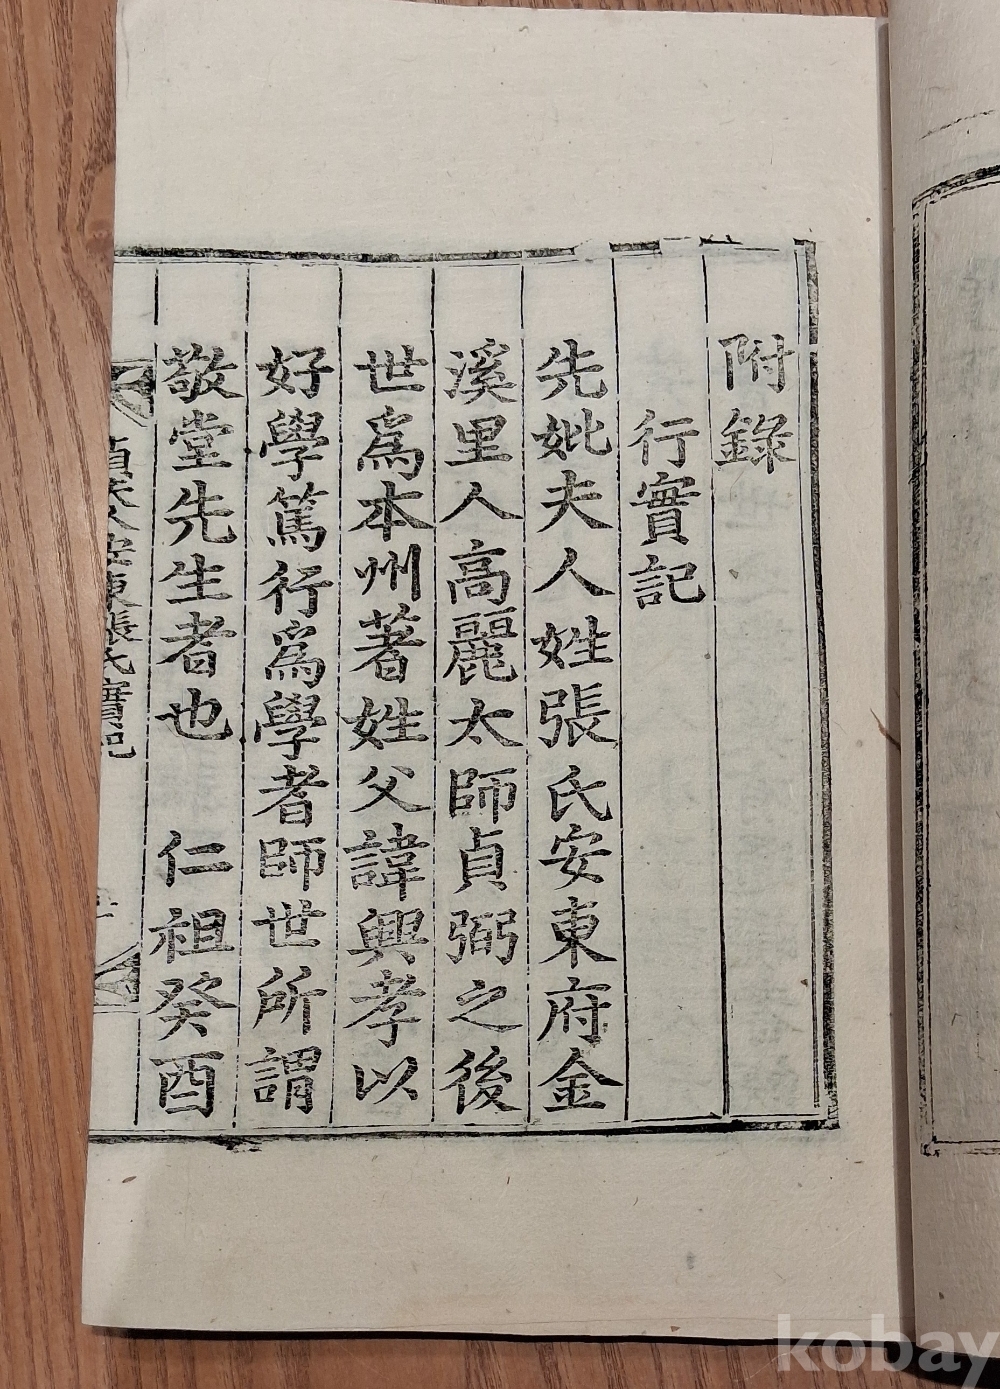 附錄
行實記
先妣夫人姓張氏安東府金
溪里人高麗太師貞弼之後
世爲本州著姓父諱興孝以
好學篤行爲學者師世所謂
敬堂先生者也 仁祖癸酉
夫人安東張氏實記
kobay